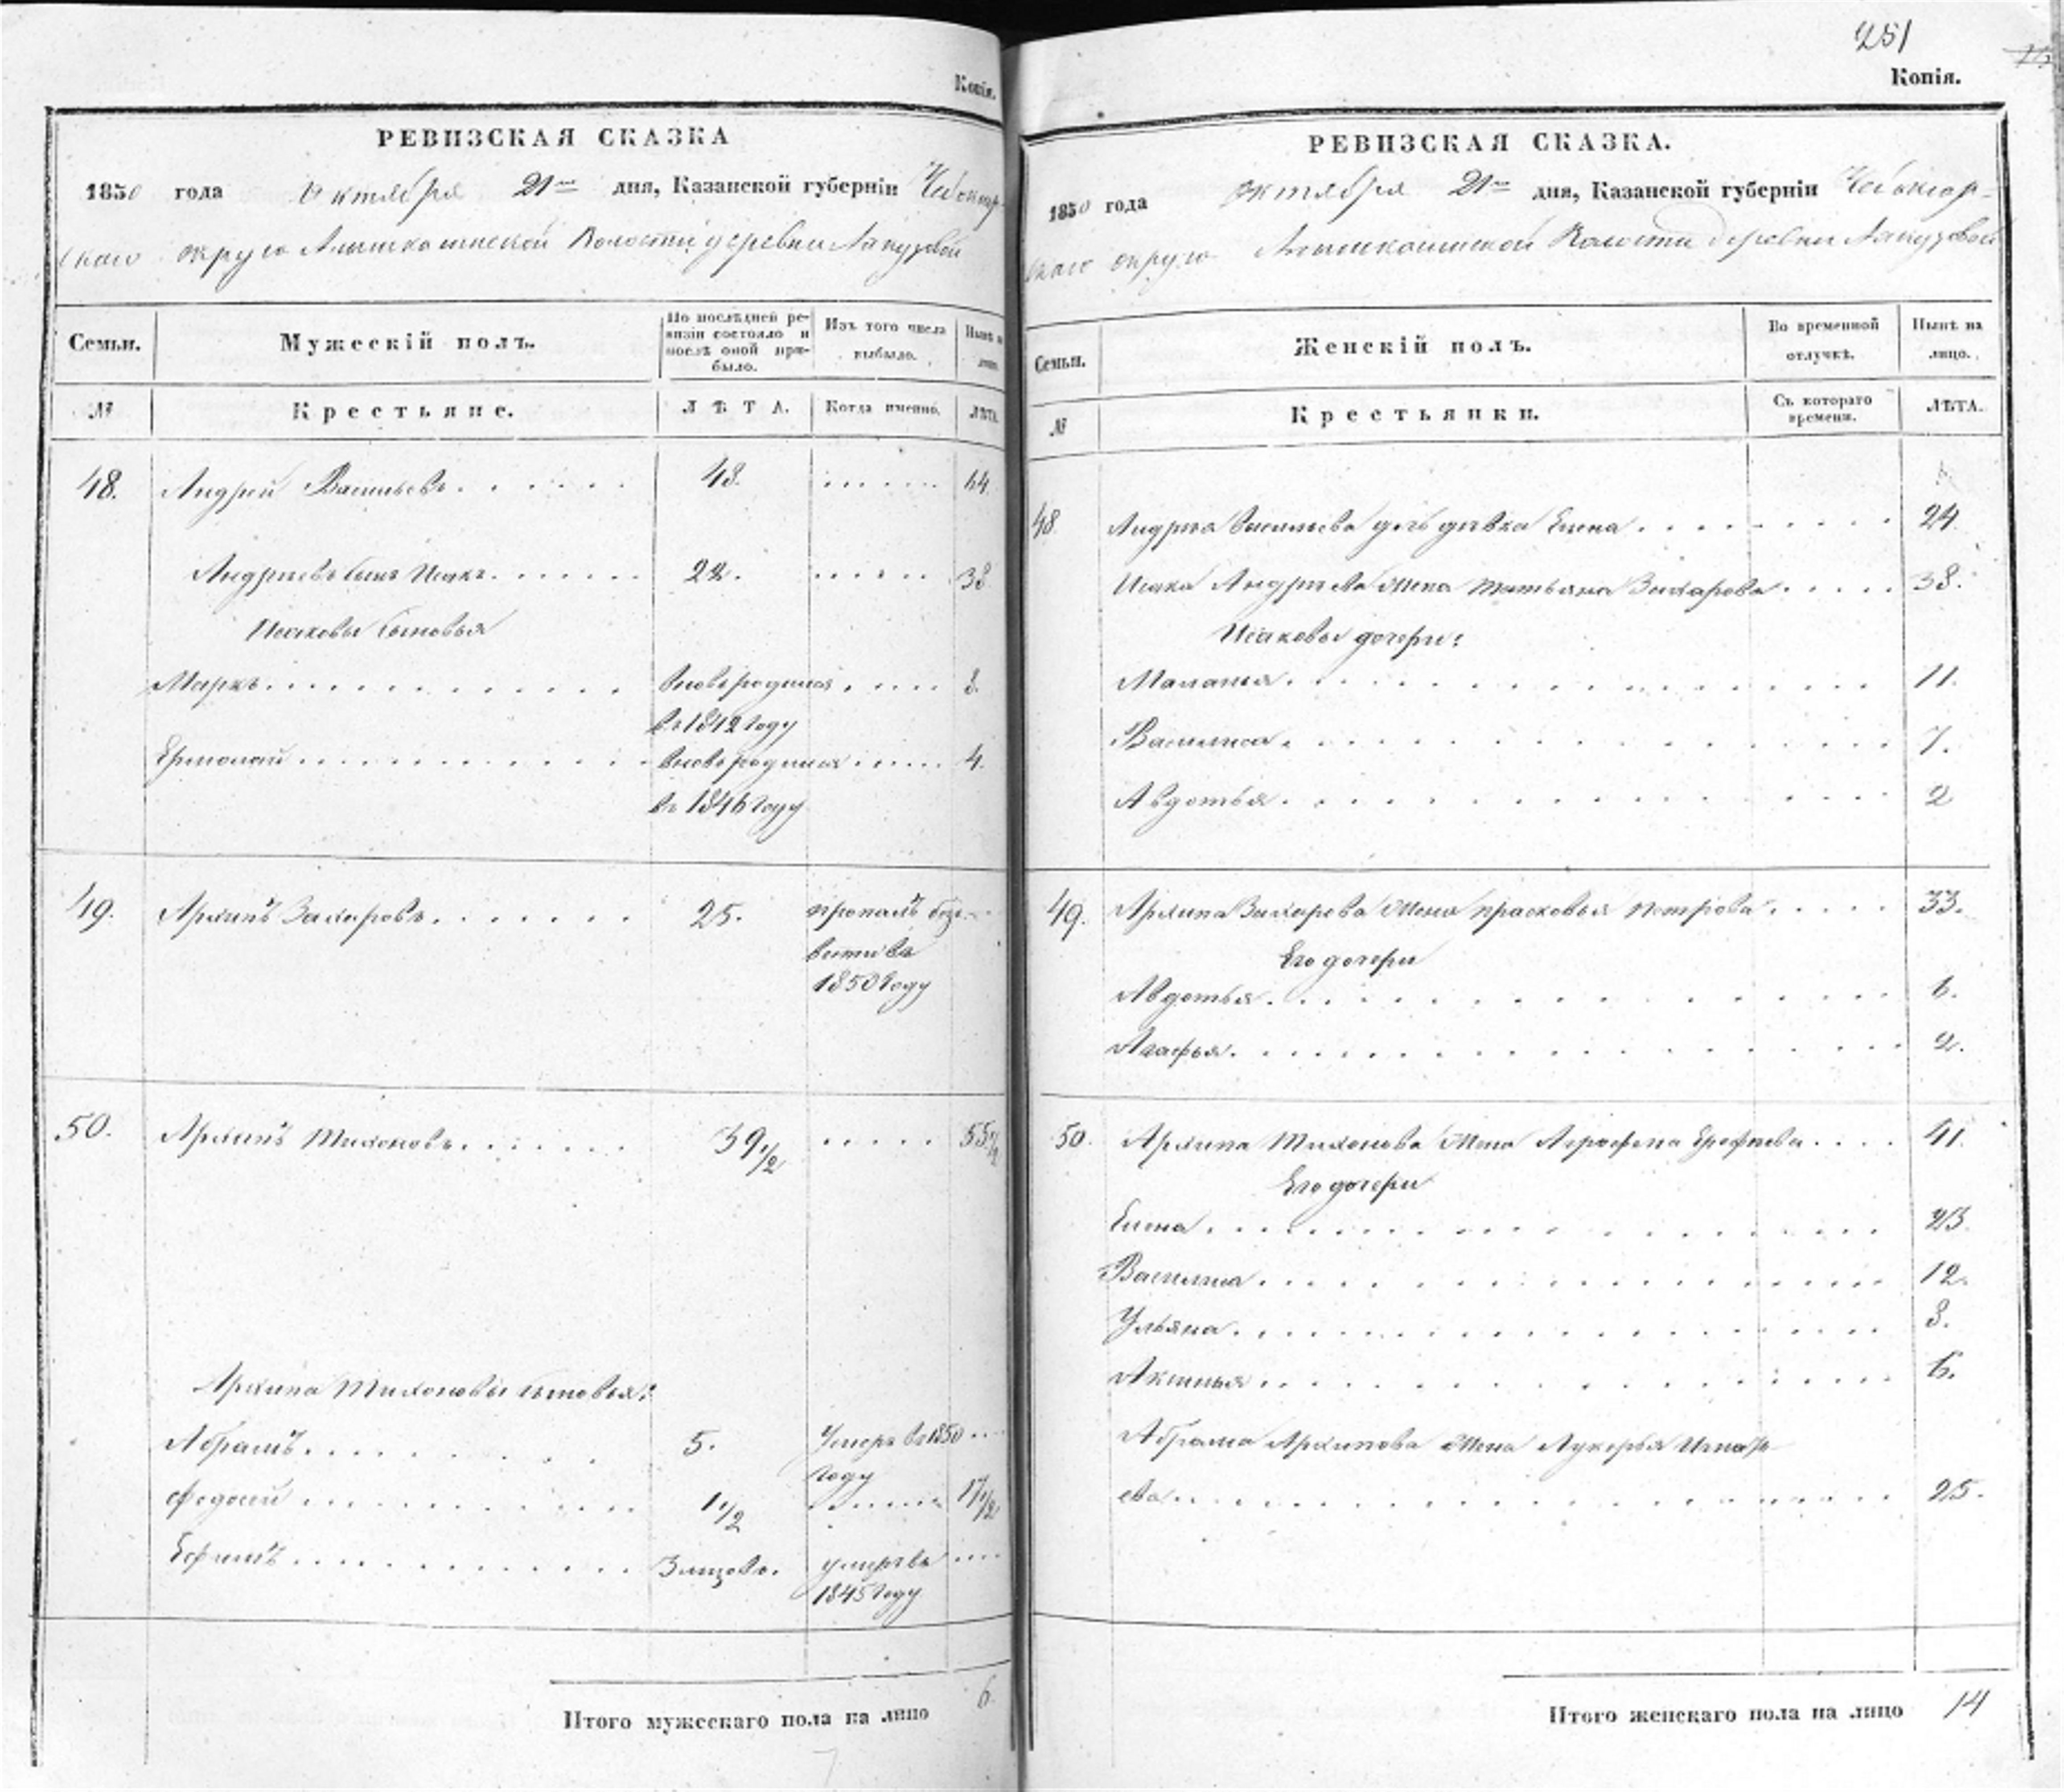 Копія.
РЕВИЗСКАЯ СКАЗКА
1850 года Октября 21го дня, Казанской губерніи Чебоксар-
скаго округа Алымкасинской Волости деревни
Семьи. Мужескій полъ. По послѣдней ре-визіи состояло и послѣ оной при-было. Изъ того числа выбыло. Нынѣ на лицо.
№ Крестьяне. ЛѢТА. Когда именно. ЛѢТА.
48. Андрей Васильевъ 48. 64
Андреевъ сынъ Исакъ 22. 38
Исаковы сыновья
Маркъ вновьродился 8.
въ 1842 году
Ермолай вновьродился 4.
въ 1846 году
49. Архипъ Захаровъ 25. пропалъ безъ
вести въ
1850 году
50. Архипъ Тихоновъ 39 1/2 55 1/2
Архипа Тихоновы сыновья:
Абрамъ 5. Умеръ въ 1850
году
Федосей 1 1/2 17 1/2
Ефимъ 3 месяцов. умеръ въ
1845 году
Итого мужескаго пола на лицо 6
251
Копія.
РЕВИЗСКАЯ СКАЗКА.
1850 года октября 21го дня, Казанской губерніи Чебоксар-
скаго округа Алымкасинской Волости деревни
Семьи. Женскій полъ. Во временной отлучкѣ. Нынѣ на лицо.
№ Крестьянки. Съ котораго времени. ЛѢТА.
48 Андрея Васильева дочь девка Елена 24
Исака Андреева Жена Татьяна Захарова 38.
Исаковы дочери:
Маланья 11.
Василиса 7.
Авдотья 2
49. Архипа Захарова Жена Прасковья Петрова 33.
Его дочери
Авдотья 6.
Агафья 2.
50. Архипа Тихонова Жена Аграфена Ерофеева 41.
Его дочери
Елена 23.
Василиса 12.
Ульяна 8.
Аксинья 6.
Абрама Архипова Жена Лукерья Игнать
ева 25.
Итого женскаго пола на лицо 14